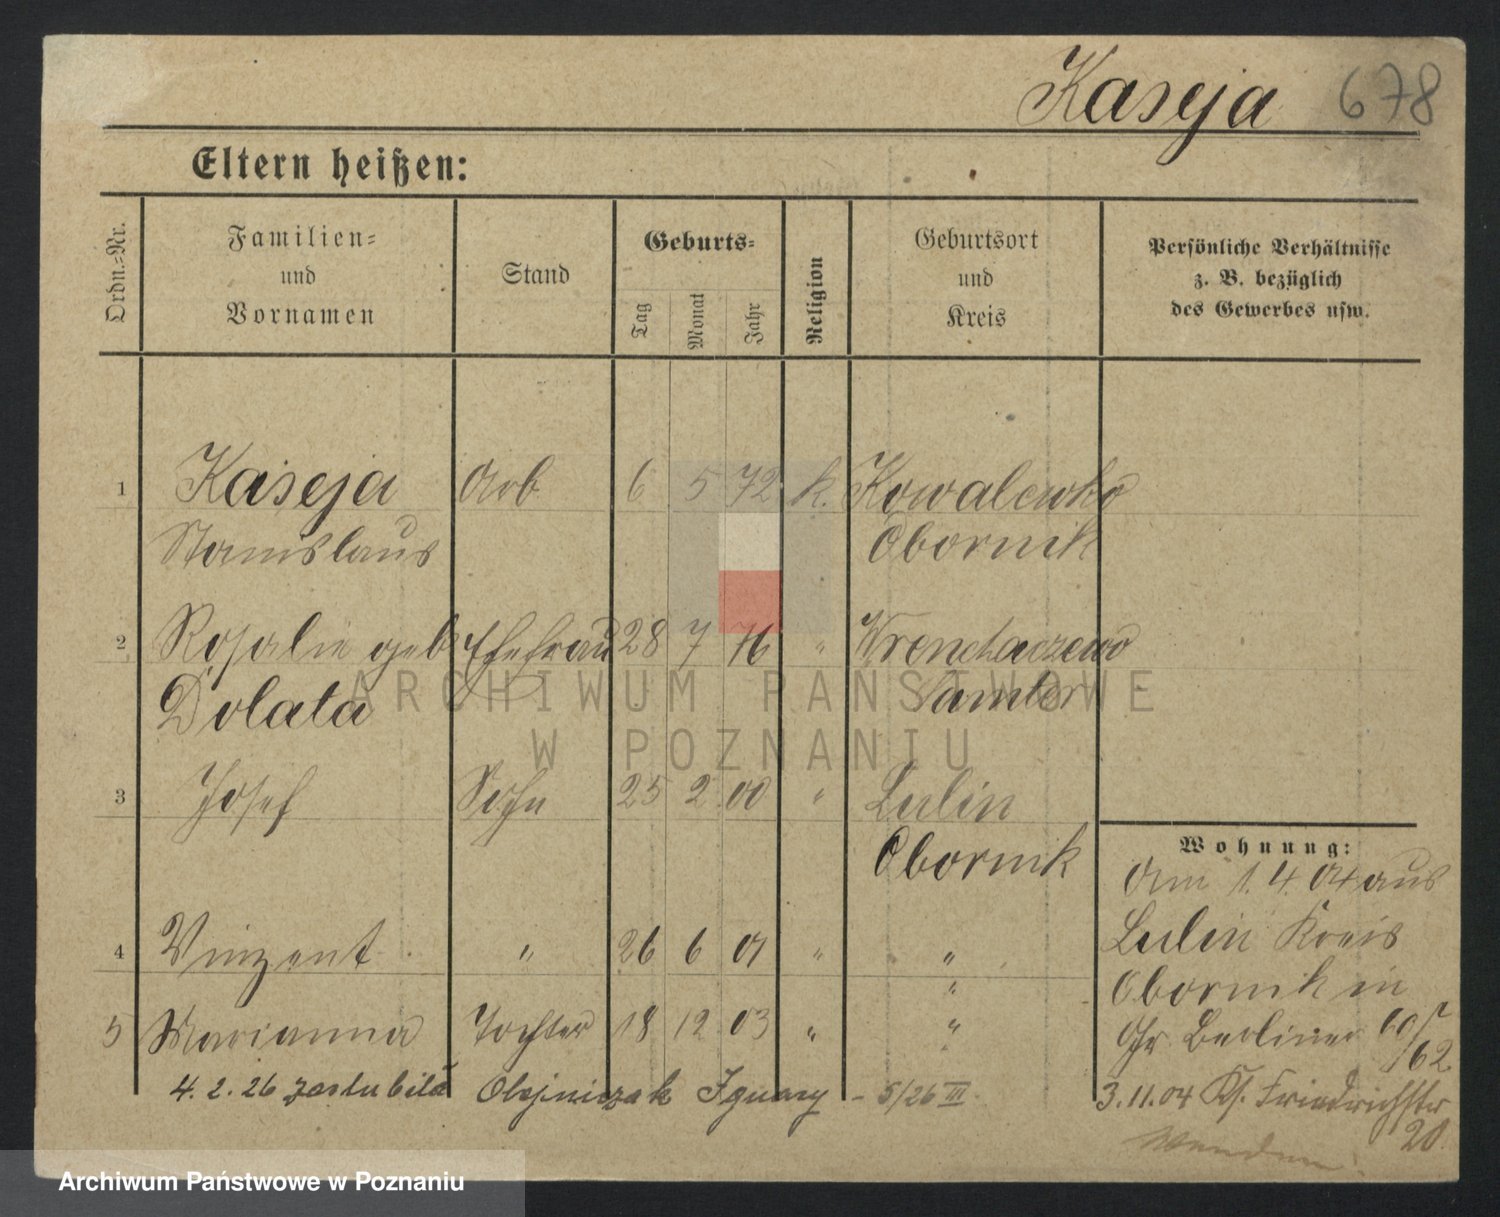 Kaseja 678
Eltern heißen:
Ordn.-Nr.
Familien-
und
Vornamen
Stand
Geburts-
Tag
Monat
Jahr
Religion
Geburtsort
und
Kreis
Persönliche Verhältnisse
z. B. bezüglich
des Gewerbes usw.
1 Kaseja Arb 6 5 72 k. Kowalewko
Stanislaus Obornik
2 Rosalie geb Ehefrau 28 7 76 "
Dolata Samter
3 Josef Sohn 25 2 00 " Lulin
Obornik
4 Vinzent " 26 6 01 " "
"
5 Marianna Tochter 18 12 03 " "
4. 2. 26 zaślubiła Olejniczak Ignacy - 5/26 III.
Wohnung:
Am 1. 4. 04 aus
Lulin Kreis
Obornik in
Gr. Berliner 60/62
3.11.04 Friedrichstr
20.
wenden.
ARCHIWUM PAŃSTWOWE
W POZNANIU
Archiwum Państwowe w Poznaniu